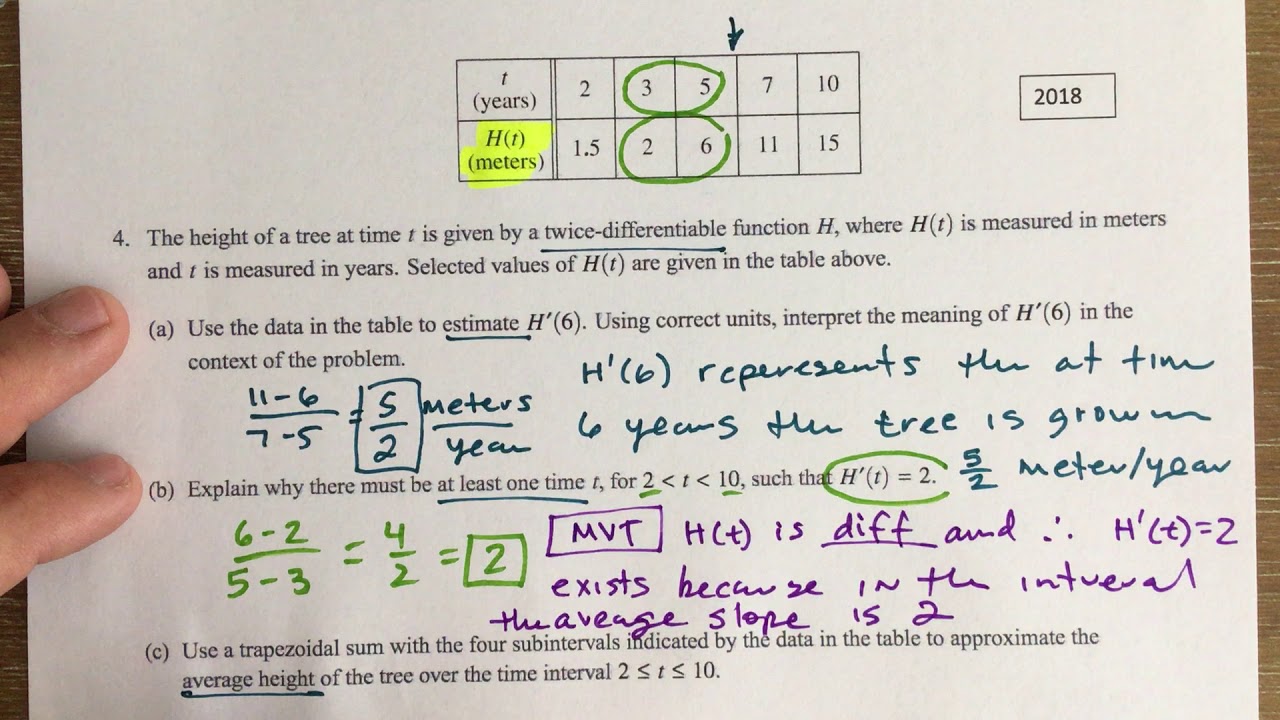 t (years) 2 3 5 7 10
H(t) (meters) 1.5 2 6 11 15
2018
4. The height of a tree at time t is given by a twice-differentiable function H, where H(t) is measured in meters
and t is measured in years. Selected values of H(t) are given in the table above.
(a) Use the data in the table to estimate H′(6). Using correct units, interpret the meaning of H′(6) in the
context of the problem.
11-6 / 7-5 = 5/2 meters/year
H'(6) reperesents the at time
6 years the tree is growin
5/2 meter/year
(b) Explain why there must be at least one time t, for 2 < t < 10, such that H′(t) = 2.
6-2 / 5-3 = 4/2 = 2
MVT H(t) is diff and ∴ H'(t)=2
exists because in the intuerval
the aveage slope is 2
(c) Use a trapezoidal sum with the four subintervals indicated by the data in the table to approximate the
average height of the tree over the time interval 2 ≤ t ≤ 10.